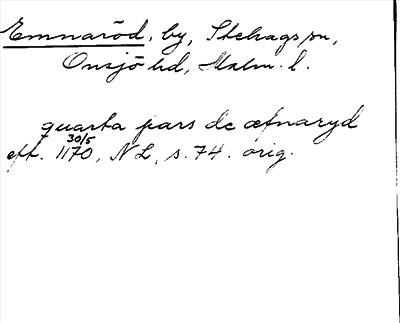 Emnaröd, by, Stehags sn,
Onsjö hd, Malm. l.
quarta pars de æfnaryd
eft. 30/5 1170, NL, s. 74. orig.